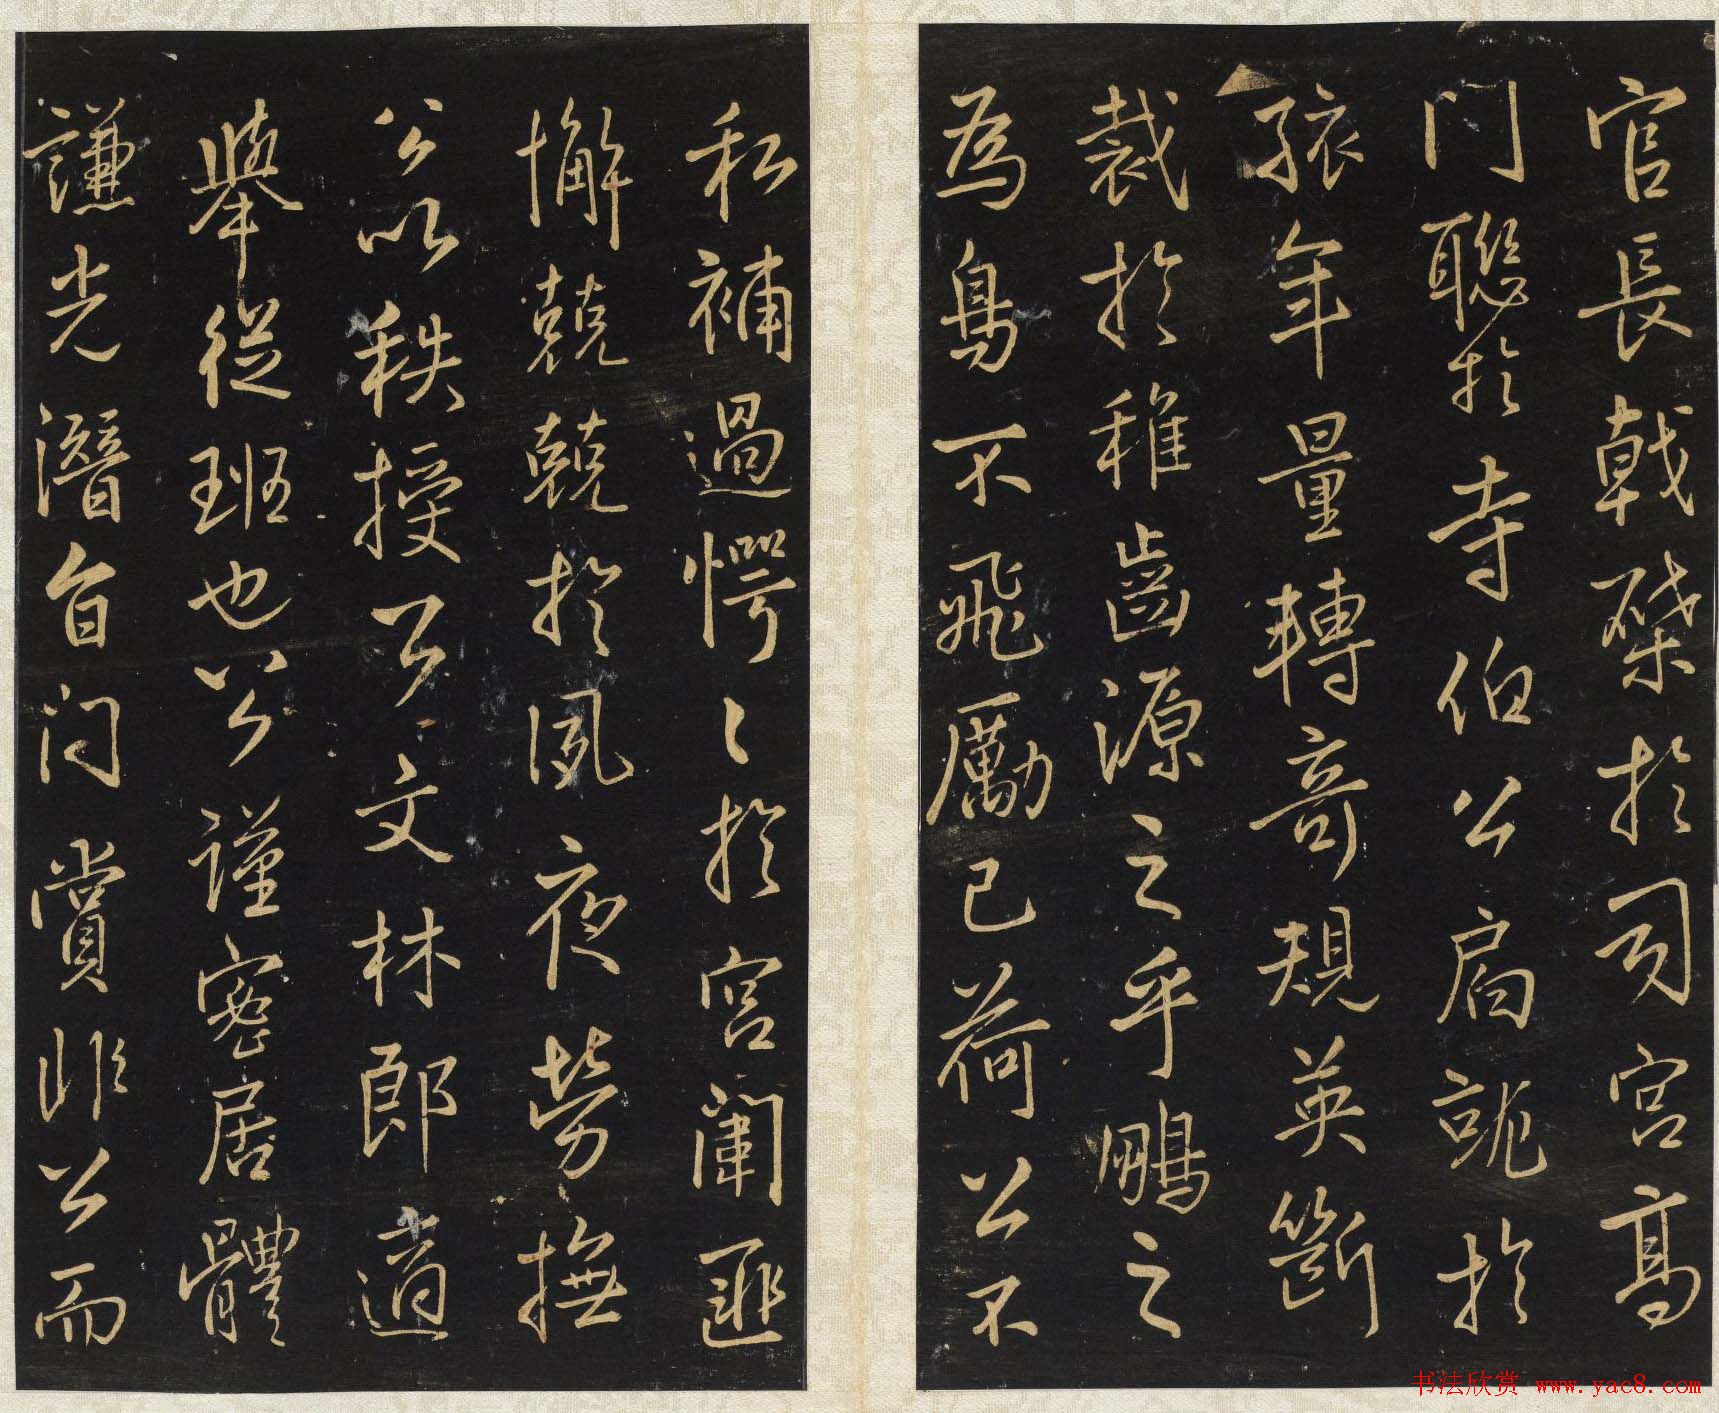 官長戟棨於司宮高
門聯於寺伯公扃詭於
孩年量轉奇規英斷
裁於稚齒源之乎鵬之
為鳥不飛勵己荷公不
私補過愕〻於宮闈匪
懈兢兢於夙夜勞撫
公以秩授公文林郎適
舉從班也公謹密居體
謙光潛自門賞非公而
书法欣赏 www.yac8.com